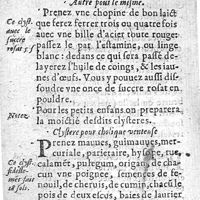 Autre pour le mesme.
Prenez vne chopine de bon laict
que ferez ferrer trois ou quatre fois
auec vne bille d'acier toute rouge:
passez le par l'estamine, ou linge
blanc: dedans ce qui sera passé de-
layerez l'huile de coings, & les iau-
nes d'œufs. Vous y pouuez aussi dis-
soudre vne once de succre rosat en
pouldre.
Pour les petits enfans on preparera
la moictié desdits clysteres.
Clystere pour cholique venteuse
Prenez mauues, guimauues, mer-
curiale, parietaire, hysope, rue,
calamẽt, pulegium, origan, de cha-
cun vne poignee, semences de fe-
nouil, de cheruis, de cumin, chacũ le
pois de deux escus, baies de laurier
Ce clyst.
auec le
succre
rosat
Notez.
Ce clyst.